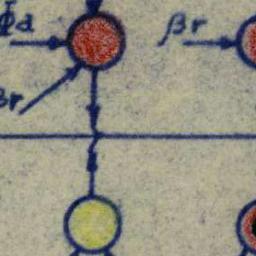 Φa
βr
βr